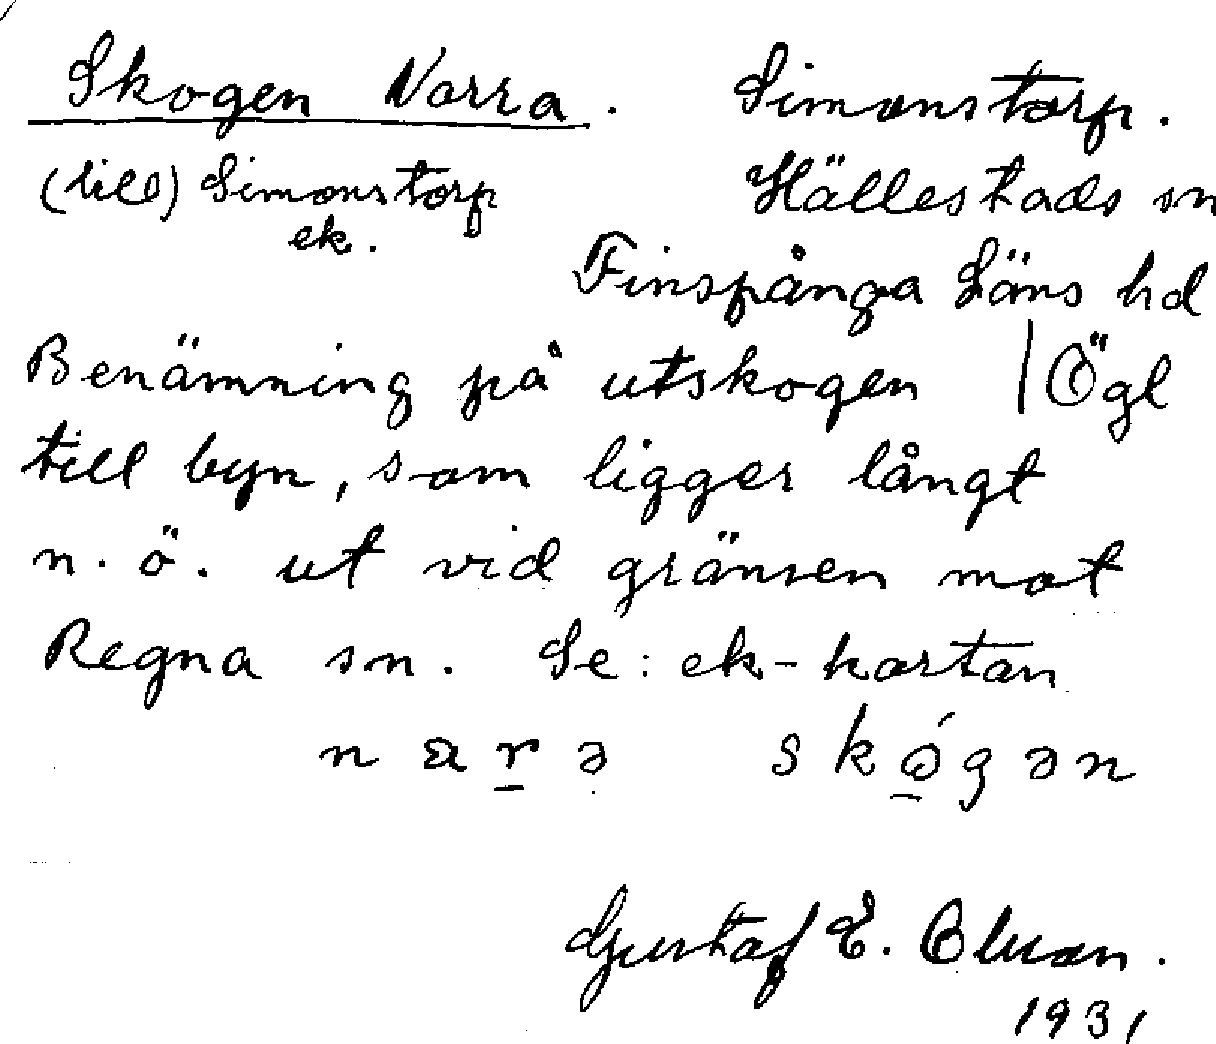 Skogen Norra. Simonstorp.
(till) Simonstorp Hällestads sn
ek.
Finspånga Läns hd
Benämning på utskogen | Ögl
till byn, som ligger långt
n. ö. ut vid gränsen mot
Regna sn. Se: ek-kartan
Gustaf E.
1931